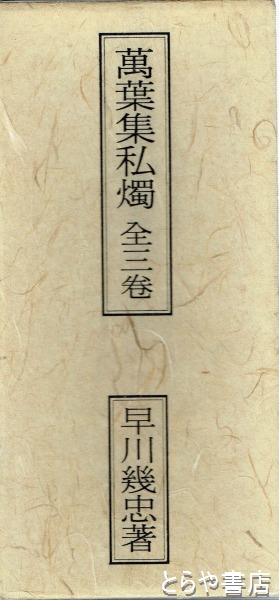 萬葉集私燭 全三巻
早川幾忠著
とらや書店